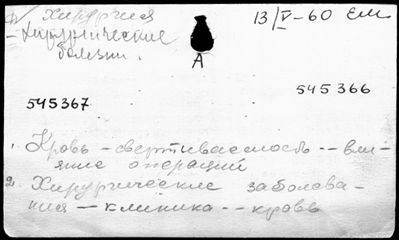 Хирургия 13/V-60 Ем
- Хирургические
болезни.
А
545366
545367
1. Кровь - свертываемость -- вли-
яние операций
2. Хирургические заболева-
ния -- клиника -- кровь